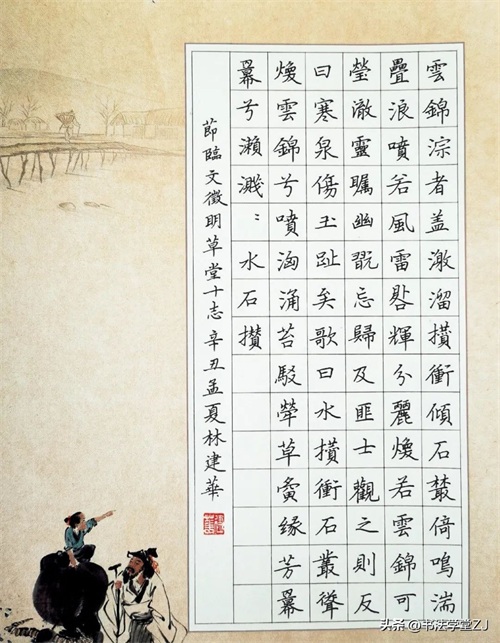 雲錦淙者盖激溜攢衝傾石藂倚鳴湍
疊浪噴若風雷輝分麗煥若雲錦可
瑩澈靈矚幽翫忘歸及匪士觀之則反
曰寒泉傷玉趾矣歌曰水攢衝石叢聲
煥雲錦兮噴洶涌苔駮犖草夤缘芳羃
羃兮瀨濺〻水石攢
節臨文徵明草堂十志 辛丑孟夏林建華
头条 @书法学堂ZJ